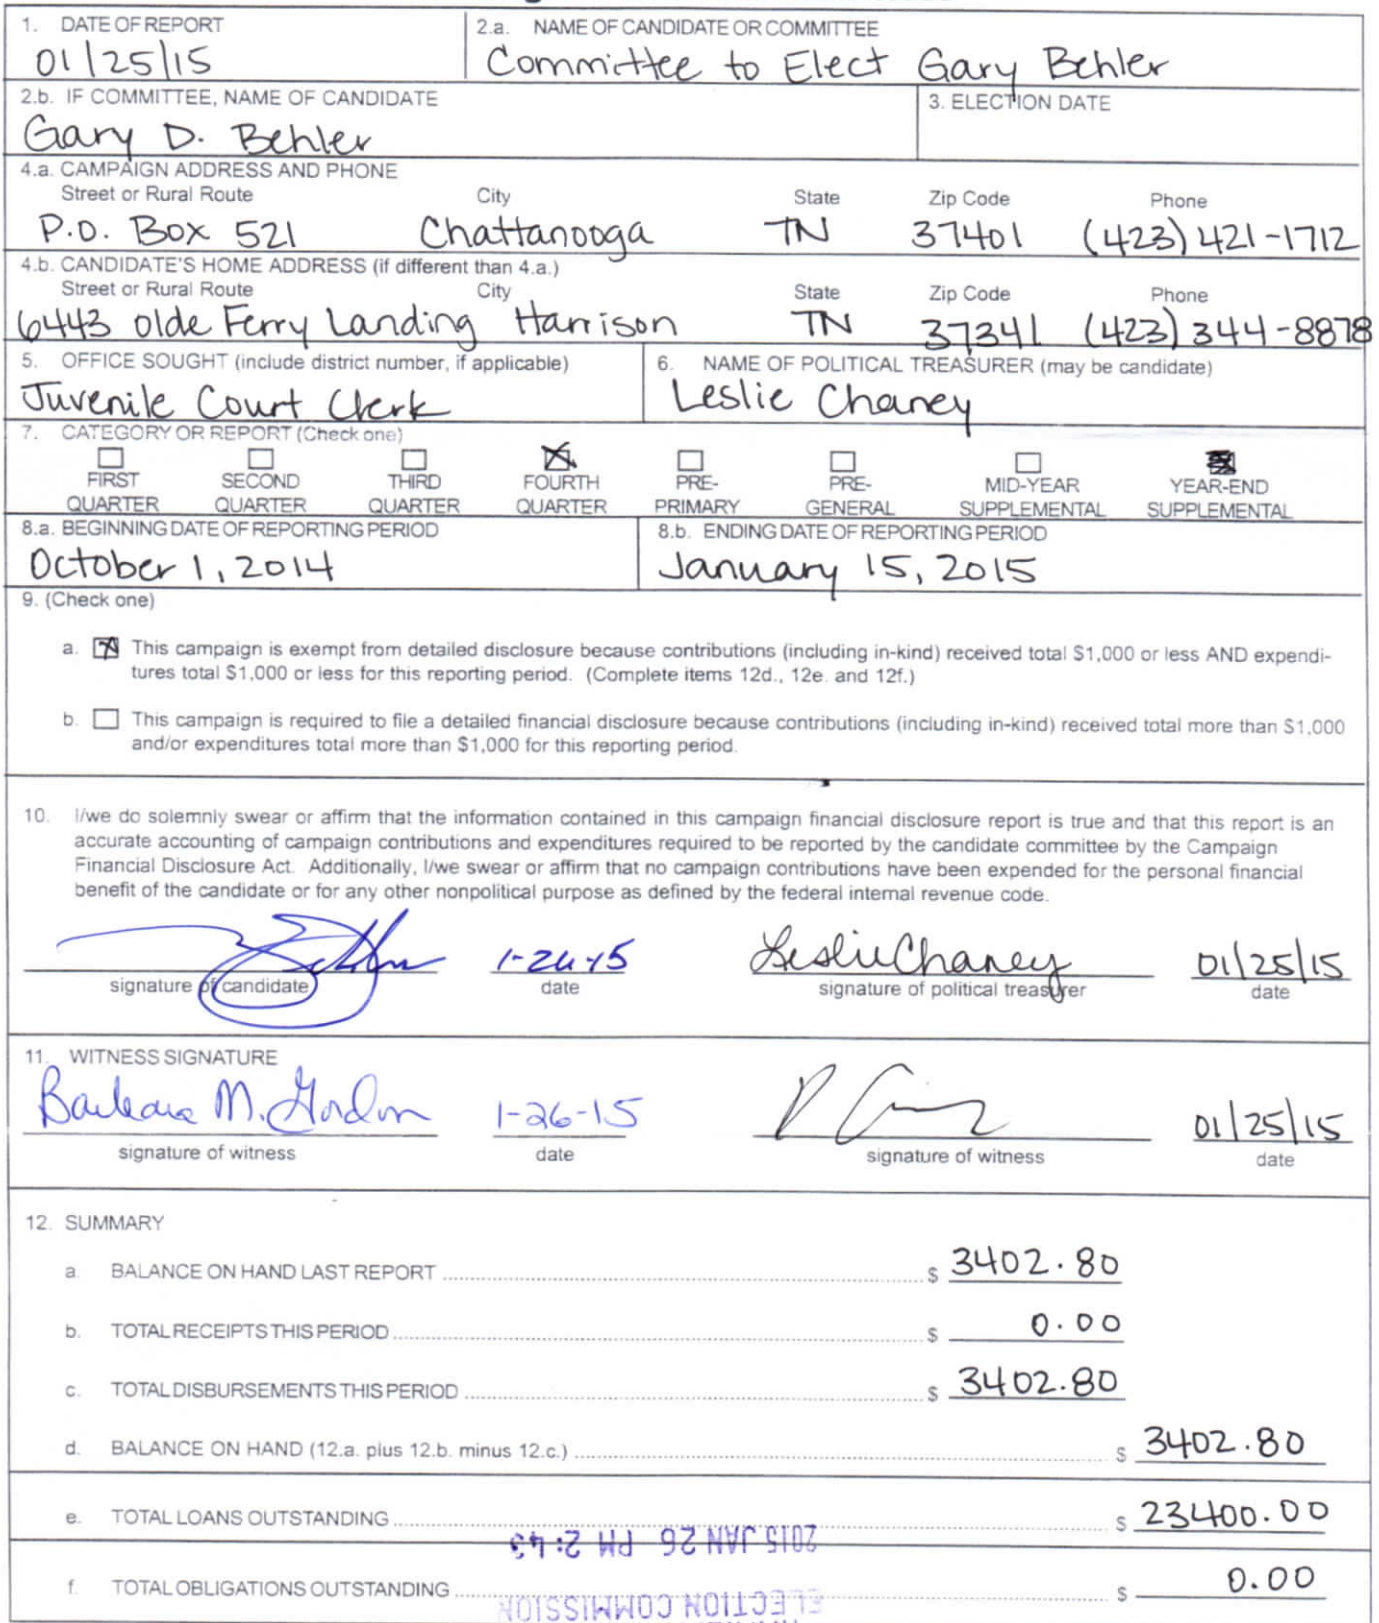 1. DATE OF REPORT
01/25/15
2.a. NAME OF CANDIDATE OR COMMITTEE
Committee to Elect Gary Behler
2.b. IF COMMITTEE, NAME OF CANDIDATE
Gary D. Behler
3. ELECTION DATE
4.a. CAMPAIGN ADDRESS AND PHONE
Street or Rural Route City State Zip Code Phone
P.O. Box 521 Chattanooga TN 37401 (423) 421-1712
4.b. CANDIDATE'S HOME ADDRESS (if different than 4.a.)
Street or Rural Route City State Zip Code Phone
6443 Olde Ferry Landing Harrison TN 37341 (423) 344-8878
5. OFFICE SOUGHT (include district number, if applicable)
Juvenile Court Clerk
6. NAME OF POLITICAL TREASURER (may be candidate)
Leslie Chaney
7. CATEGORY OR REPORT (Check one)
FIRST SECOND THIRD FOURTH PRE- PRE- MID-YEAR YEAR-END
QUARTER QUARTER QUARTER QUARTER PRIMARY GENERAL SUPPLEMENTAL SUPPLEMENTAL
8.a. BEGINNING DATE OF REPORTING PERIOD
October 1, 2014
8.b. ENDING DATE OF REPORTING PERIOD
January 15, 2015
9. (Check one)
a. This campaign is exempt from detailed disclosure because contributions (including in-kind) received total $1,000 or less AND expendi-
tures total $1,000 or less for this reporting period. (Complete items 12d., 12e. and 12f.)
b. This campaign is required to file a detailed financial disclosure because contributions (including in-kind) received total more than $1,000
and/or expenditures total more than $1,000 for this reporting period.
10. I/we do solemnly swear or affirm that the information contained in this campaign financial disclosure report is true and that this report is an
accurate accounting of campaign contributions and expenditures required to be reported by the candidate committee by the Campaign
Financial Disclosure Act. Additionally, I/we swear or affirm that no campaign contributions have been expended for the personal financial
benefit of the candidate or for any other nonpolitical purpose as defined by the federal internal revenue code.
1-26-15 Leslie Chaney 01/25/15
signature of candidate date signature of political treasurer date
11. WITNESS SIGNATURE
Barbara M. Gordon 1-26-15 01/25/15
signature of witness date signature of witness date
12. SUMMARY
a. BALANCE ON HAND LAST REPORT $ 3402.80
b. TOTAL RECEIPTS THIS PERIOD $ 0.00
c. TOTAL DISBURSEMENTS THIS PERIOD $ 3402.80
d. BALANCE ON HAND (12.a. plus 12.b. minus 12.c.) $ 3402.80
e. TOTAL LOANS OUTSTANDING $ 23400.00
2015 JAN 26 PM 2:43
f. TOTAL OBLIGATIONS OUTSTANDING $ 0.00
ELECTION COMMISSION